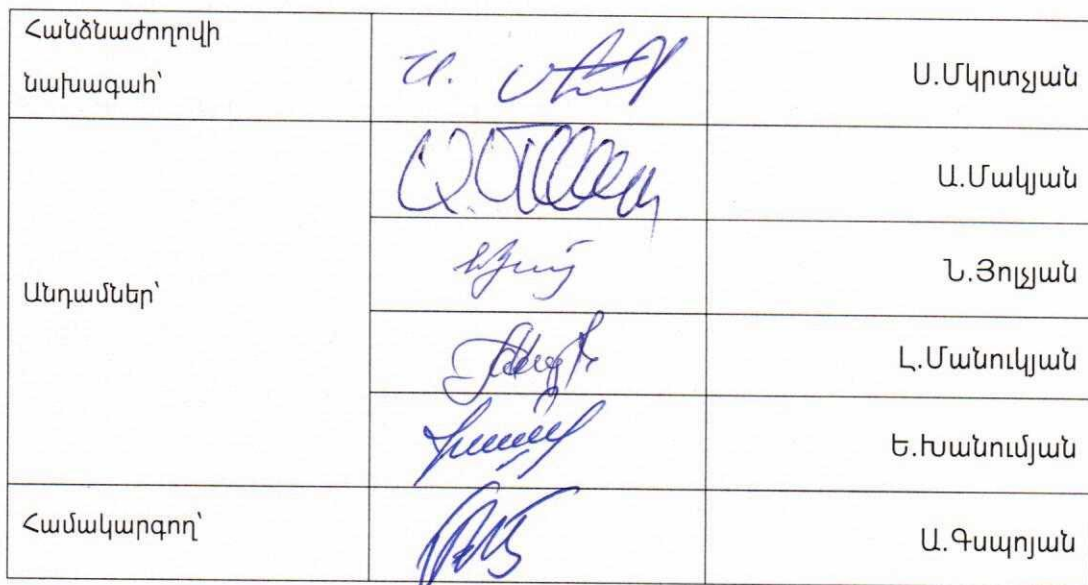 Հանձնաժողովի
նախագահ՝
Ս.Մկրտչյան
Ա.Մակյան
Անդամներ՝
Ն.Յոլչյան
Լ.Մանուկյան
Ե.Խանումյան
Համակարգող՝
Ա.Գսպոյան